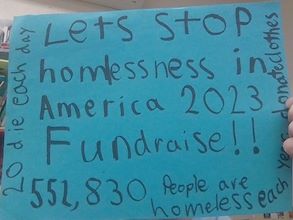 Lets stop
homlessness in
America 2023
Fundraise!!
552,830 People are
homeless each Year
20 die each day
donate clothes